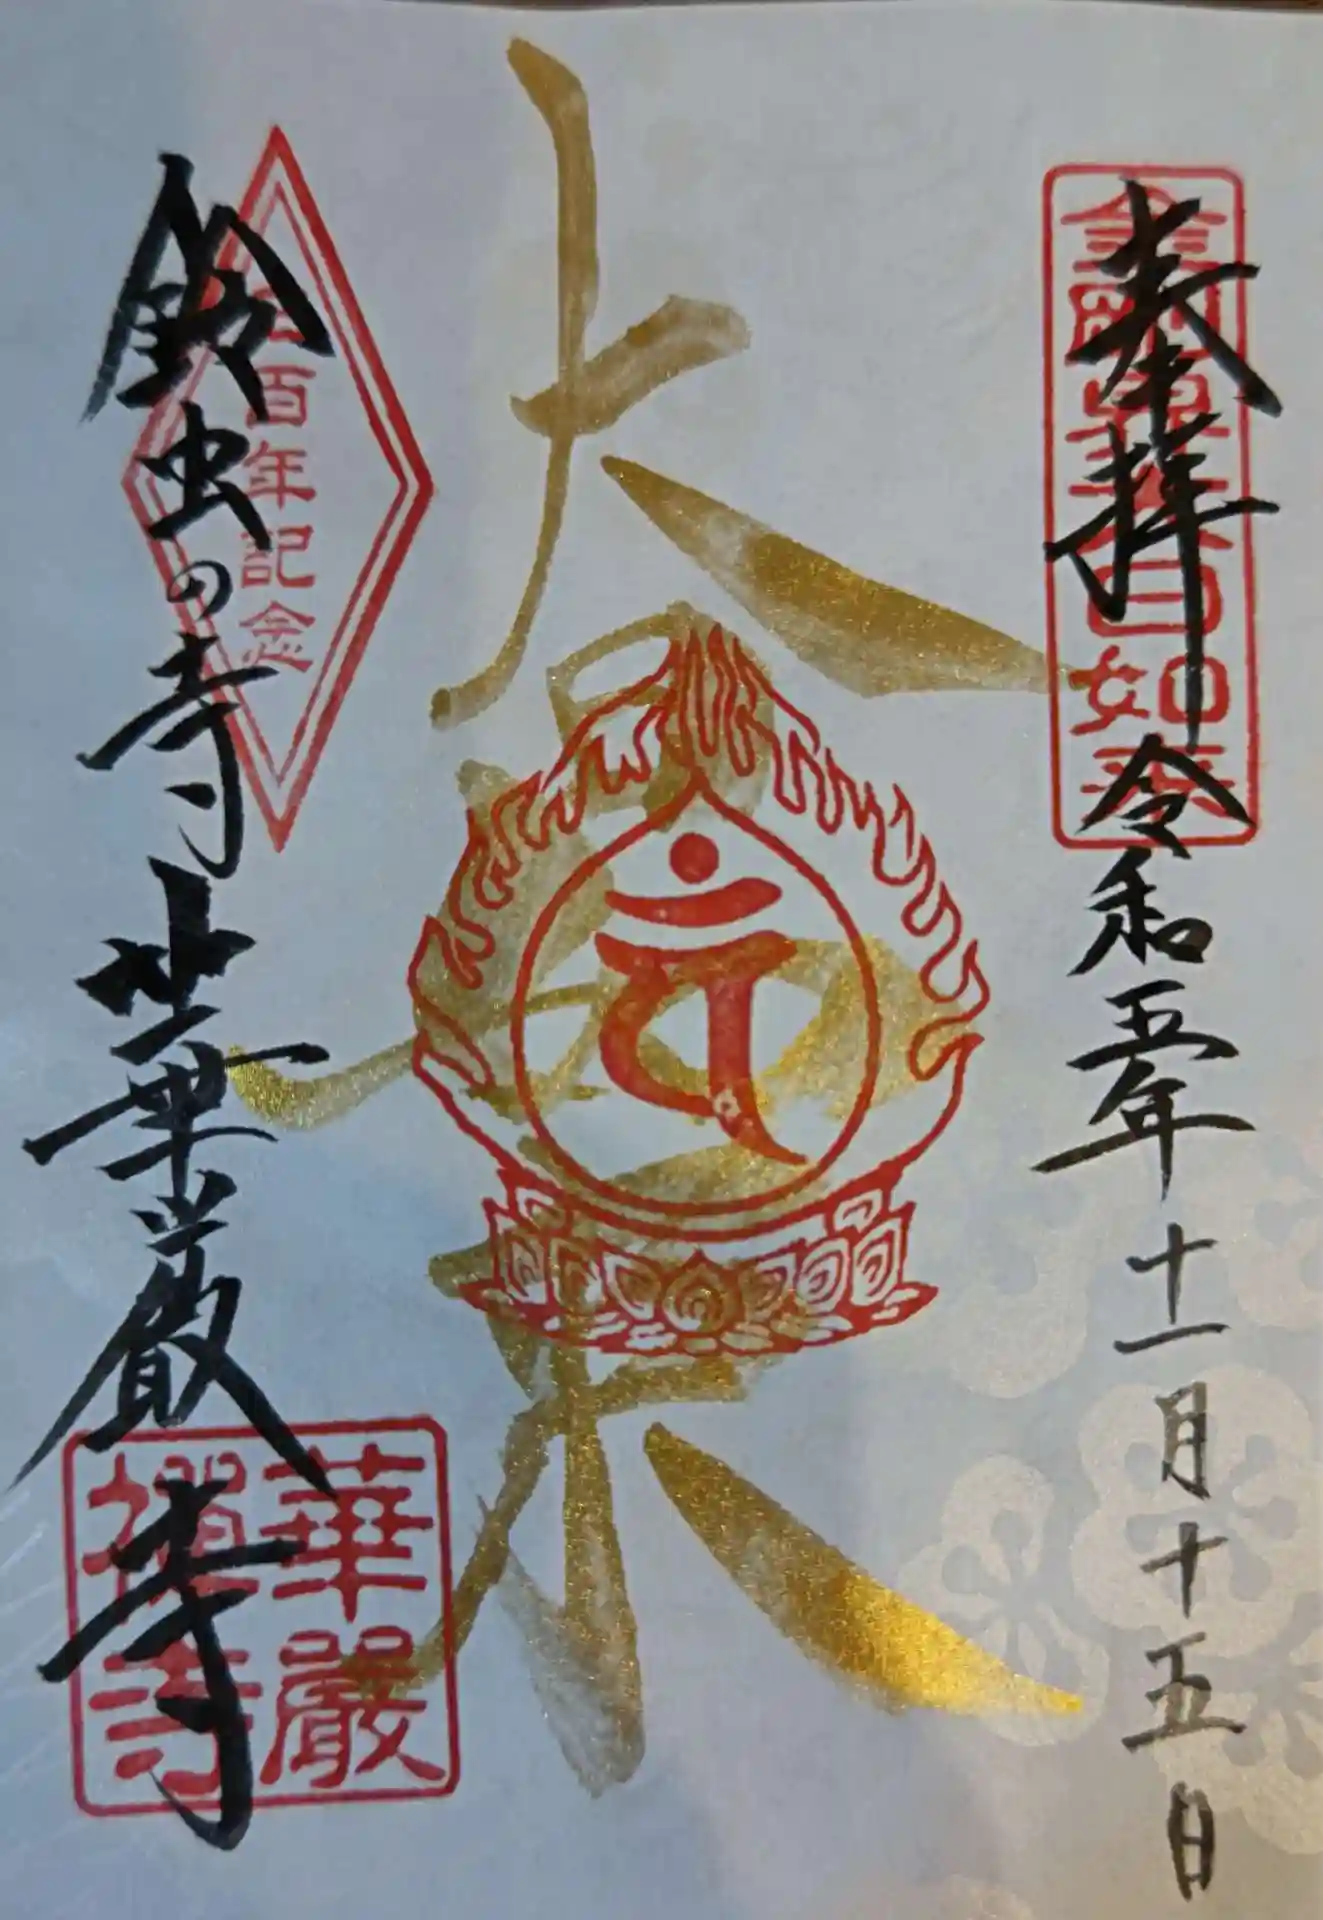 奉拝 令和五年十一月十五日
金剛界大日如来
大日如来
𑖪𑖽
鈴虫の寺 華厳寺
百年記念
華嚴
禪寺